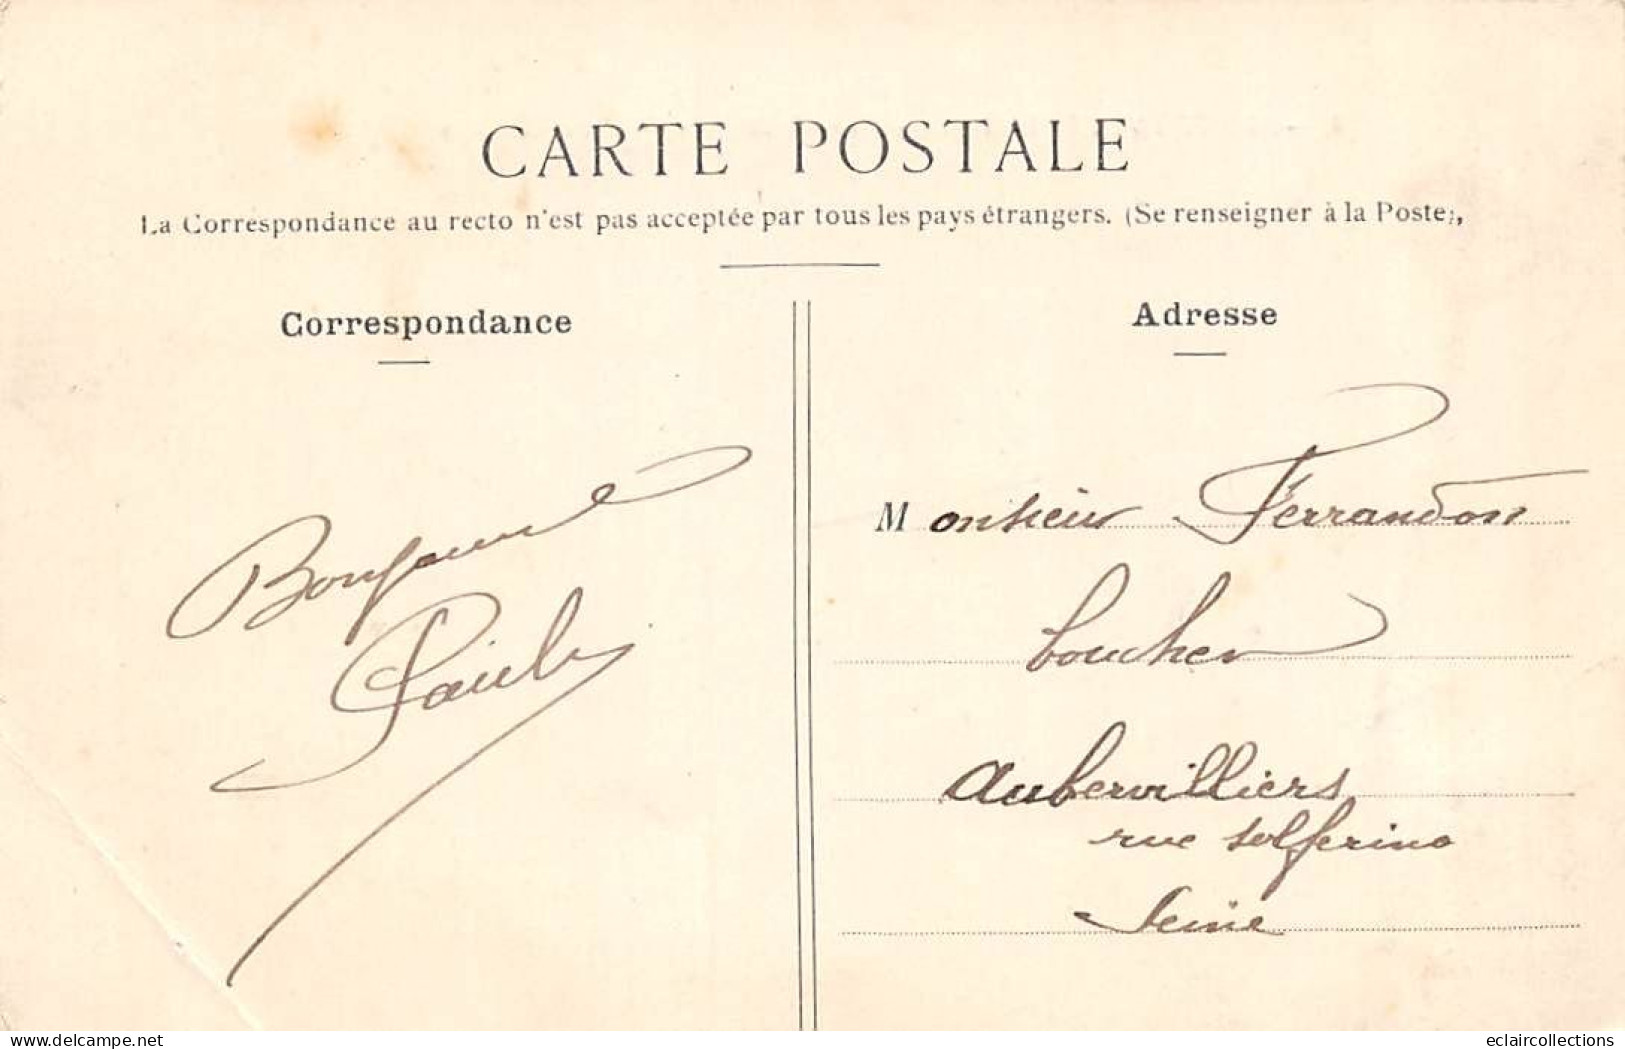 CARTE POSTALE
La Correspondance au recto n'est pas acceptée par tous les pays étrangers. (Se renseigner à la Poste),
Correspondance
Paul
Adresse
Monsieur Ferrandon
boucher
Aubervilliers
rue Solferino
Seine
delcampe.net
eclaircollections